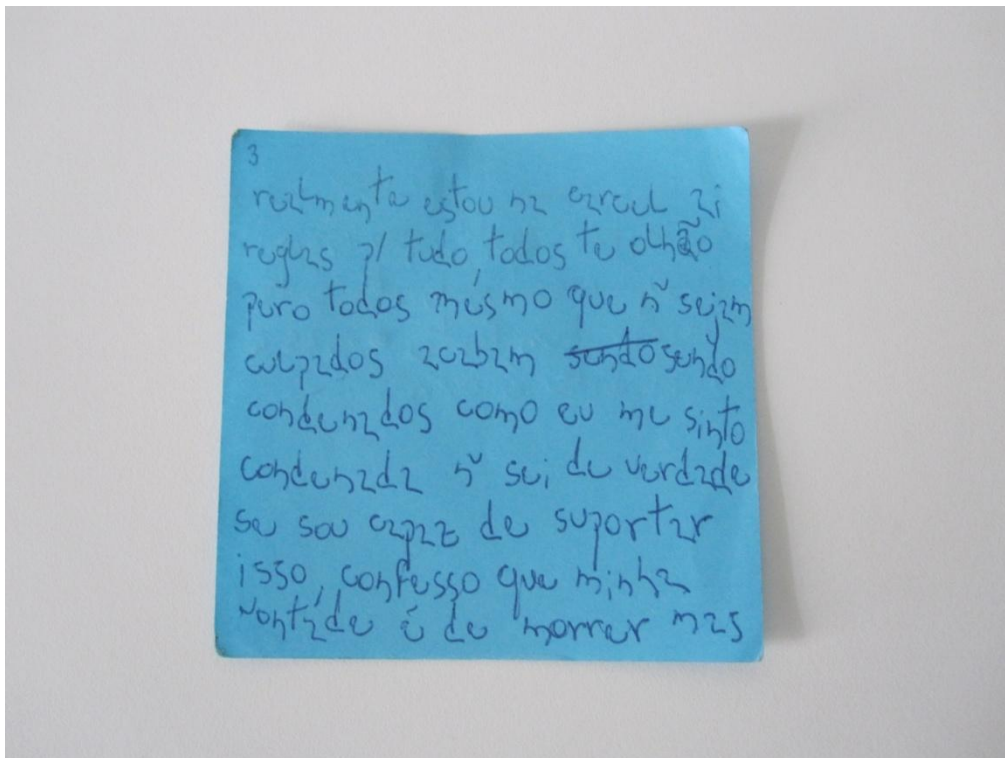 3
realmente estou na carcel ai
reglas p/ tudo, todos te olhão
pero todos mesmo que ñ sejam
culpados acabam sendo sendo
condenados como eu me sinto
condenada ñ sei de verdade
se sou capaz de suportar
isso, confesso que minha
vontade é de morrer mas